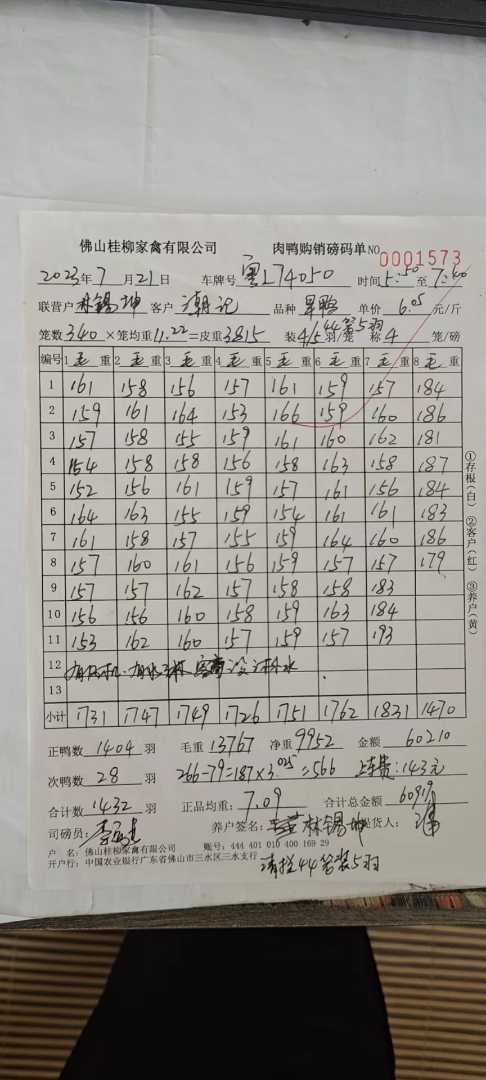 佛山桂柳家禽有限公司 肉鸭购销磅码单 NO 0001573
2023年7月21日 车牌号 粤L74050 时间 5:50 至 7:40
联营户 林锡坤 客户 潮记 品种 单价 6.05 元/斤
笼数 340 ×笼均重 11.22 =皮重 3815 装 4/5 羽/笼 44笼5羽 称 4 笼/磅
编号 1 毛 重 2 毛 重 3 毛 重 4 毛 重 5 毛 重 6 毛 重 7 毛 重 8 毛 重
1 161 158 156 157 161 159 157 184
2 159 161 164 153 166 159 160 186
3 157 158 155 159 161 160 162 181
4 154 158 158 156 158 163 158 187
5 152 156 161 159 157 161 156 184
6 164 163 155 159 154 161 161 183
7 161 158 157 155 159 164 160 186
8 157 160 161 156 159 157 157 179
9 157 157 162 157 158 158 183
10 156 156 160 158 159 163 184
11 153 162 160 157 159 157 193
12
13
小计 1731 1747 1749 1726 1751 1762 1831 1470
①存根(白) ②客户(红) ③养户(黄)
正鸭数 1404 羽 毛重 13767 净重 9952 金额 60210
次鸭数 28 羽 266-79=187×3.025=566 上车费:143元
合计数 1432 羽 正品均重: 7.09 合计总金额
司磅员: 养户签名: 林锡坤 提货人:
户 名: 佛山桂柳家禽有限公司 账号: 444 401 010 400 169 29
开户行: 中国农业银行广东省佛山市三水区三水支行
请拦44笼装5羽